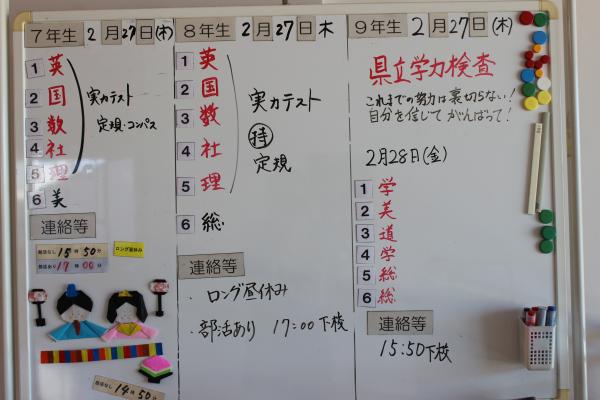 7年生 2月27日(木)
1 英
2 国
3 数
4 社
5 理
実力テスト
定規・コンパス
6 美
連絡等
部活なし 15時50分
部活あり 17時00分
ロング昼休み
部活なし 14時50分
8年生 2月27日 木
1 英
2 国
3 数
4 社
5 理
実力テスト
持
定規
6 総
連絡等
・ロング昼休み
・部活あり 17:00下校
9年生 2月27日(木)
県立学力検査
これまでの努力は裏切らない!
自分を信じてがんばって!
2月28日(金)
1 学
2 美
3 道
4 学
5 総
6 総
連絡等
15:50下校